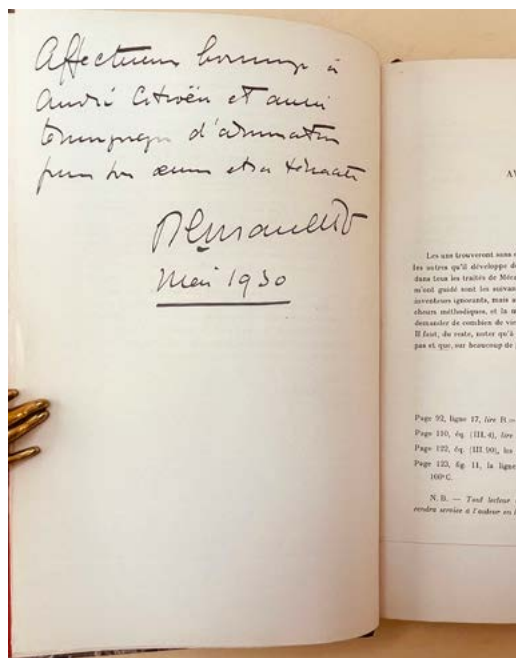 Affectueux hommage à
André Citroën et aussi
témoignage d'admiration
pour son œuvre et sa ténacité
Mai 1930
AV
Les uns trouveront sans
les autres qu'il développe de
dans tous les traités de Méca
m'ont guidé sont les suivan
inventeurs ignorants, mais a
cheurs méthodiques, et la m
demander de combien de vie
Il faut, du reste, noter qu'à
pas et que, sur beaucoup de
Page 92, ligne 17, lire B —
Page 110, éq. (III.4), lire
Page 122, éq. (III.99), les
Page 123, fig. 11, la ligne
100° C.
N. B. — Tout lecteur
rendra service à l'auteur en l